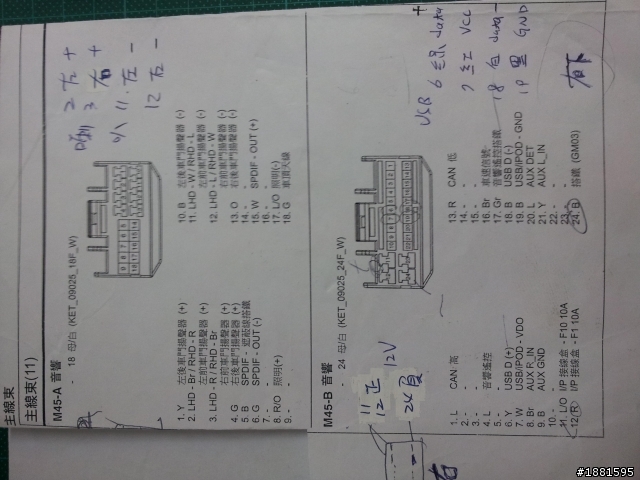 主線束
主線束(11)
M45-A 音響
- 18 母/白 (KET_09025_18F_W)
1. Y 左後車門揚聲器 (+)
2. LHD - Br / RHD - R 左前車門揚聲器 (+)
3. LHD - R / RHD - Br 右前車門揚聲器 (+)
4. G 右後車門揚聲器 (+)
5. B SPDIF - 遮蔽線搭鐵
6. G SPDIF - OUT (-)
7. -
8. R/O 照明(+)
9. -
10. B 左後車門揚聲器 (-)
11. LHD - W / RHD - L 左前車門揚聲器 (-)
12. LHD - L / RHD - W 右前車門揚聲器 (-)
13. O 右後車門揚聲器 (-)
14. -
15. W SPDIF - OUT (+)
16. -
17. L/O 照明(-)
18. G 車頂天線
2 左 +
3 右 +
11. 左 -
12 右 -
M45-B 音響
- 24 母/白 (KET_09025_24F_W)
1. L CAN 高
2. -
3. -
4. L 音響遙控
5. -
6. Y USB D (+)
7. W USB/IPOD - VDO
8. Br AUX R_IN
9. B AUX GND
10. -
11. L/O I/P 接線盒 - F10 10A
12. R I/P 接線盒 - F1 10A
13. R CAN 低
14. -
15. -
16. Br 車速信號
17. Gr 音響遙控搭鐵
18. B USB D (-)
19. B USB/IPOD - GND
20. L AUX DET
21. Y AUX L_IN
22. -
23. -
24. B 搭鐵 (GM03)
USB 6 綠 data +
7 紅 VCC
18 白 data -
19 黑 GND
右下
11 正
12 12V
24 負
右
#1881595